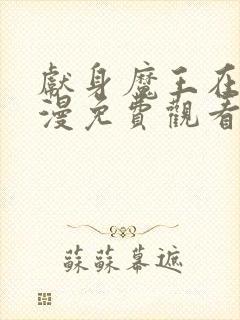 獻身魔王在
漫免費觀看
蘇蘇幕遮